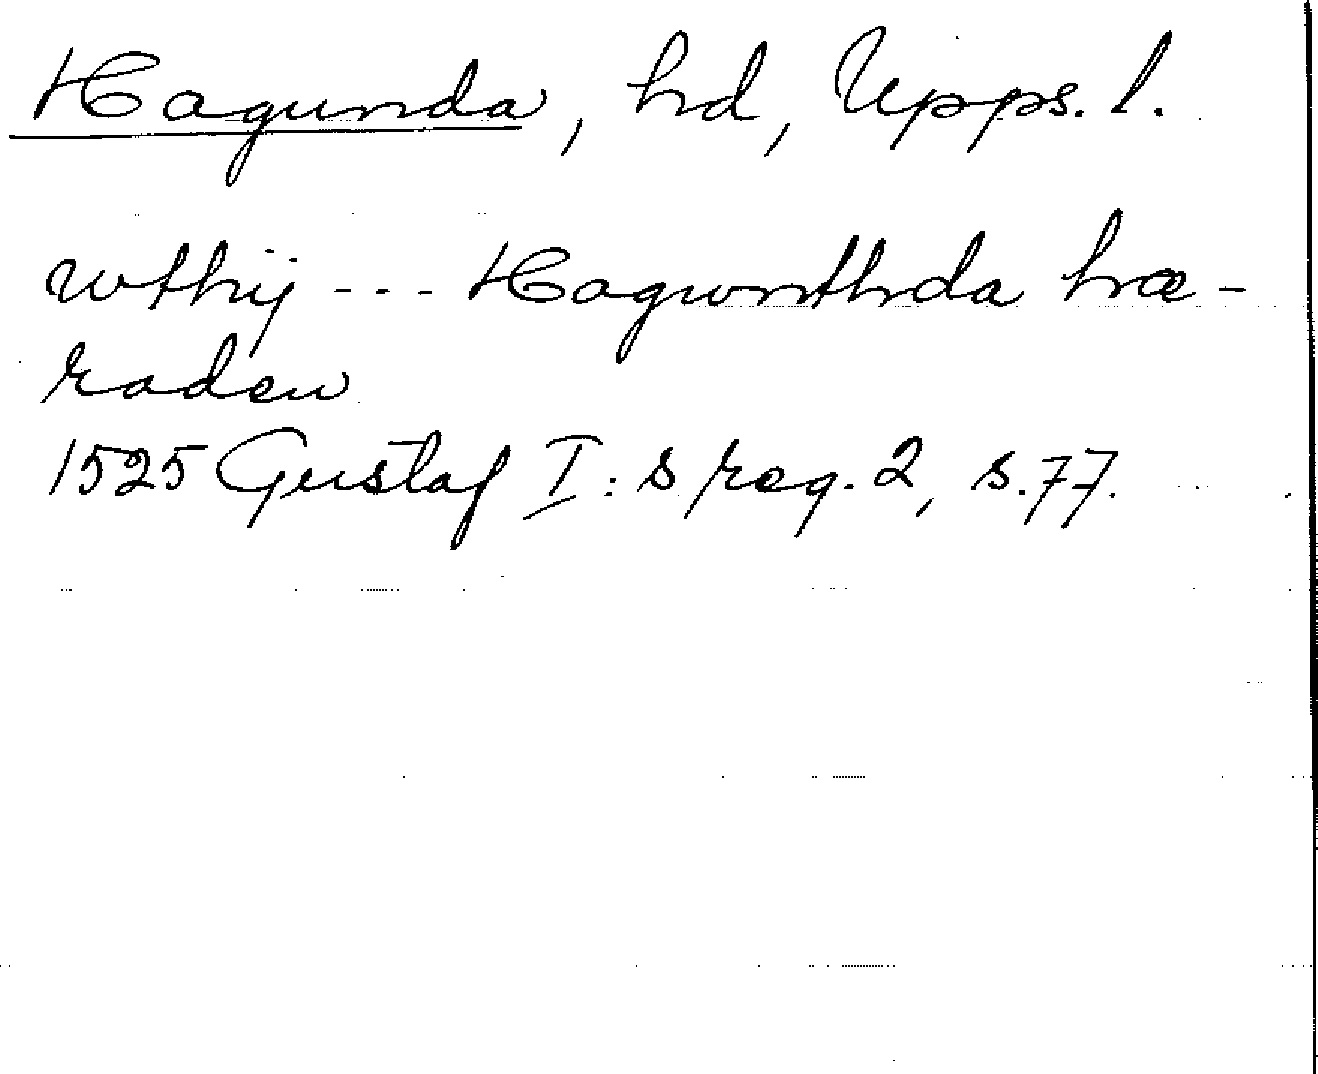 Hagunda, hd, Upps. l.
wthij --- Hagwnthda hæ-
raden
1525 Gustaf I:s reg. 2, s. 77.